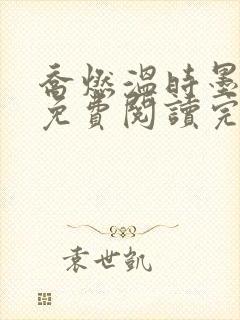 喬燃溫時墨
免費閱讀完
袁世凱